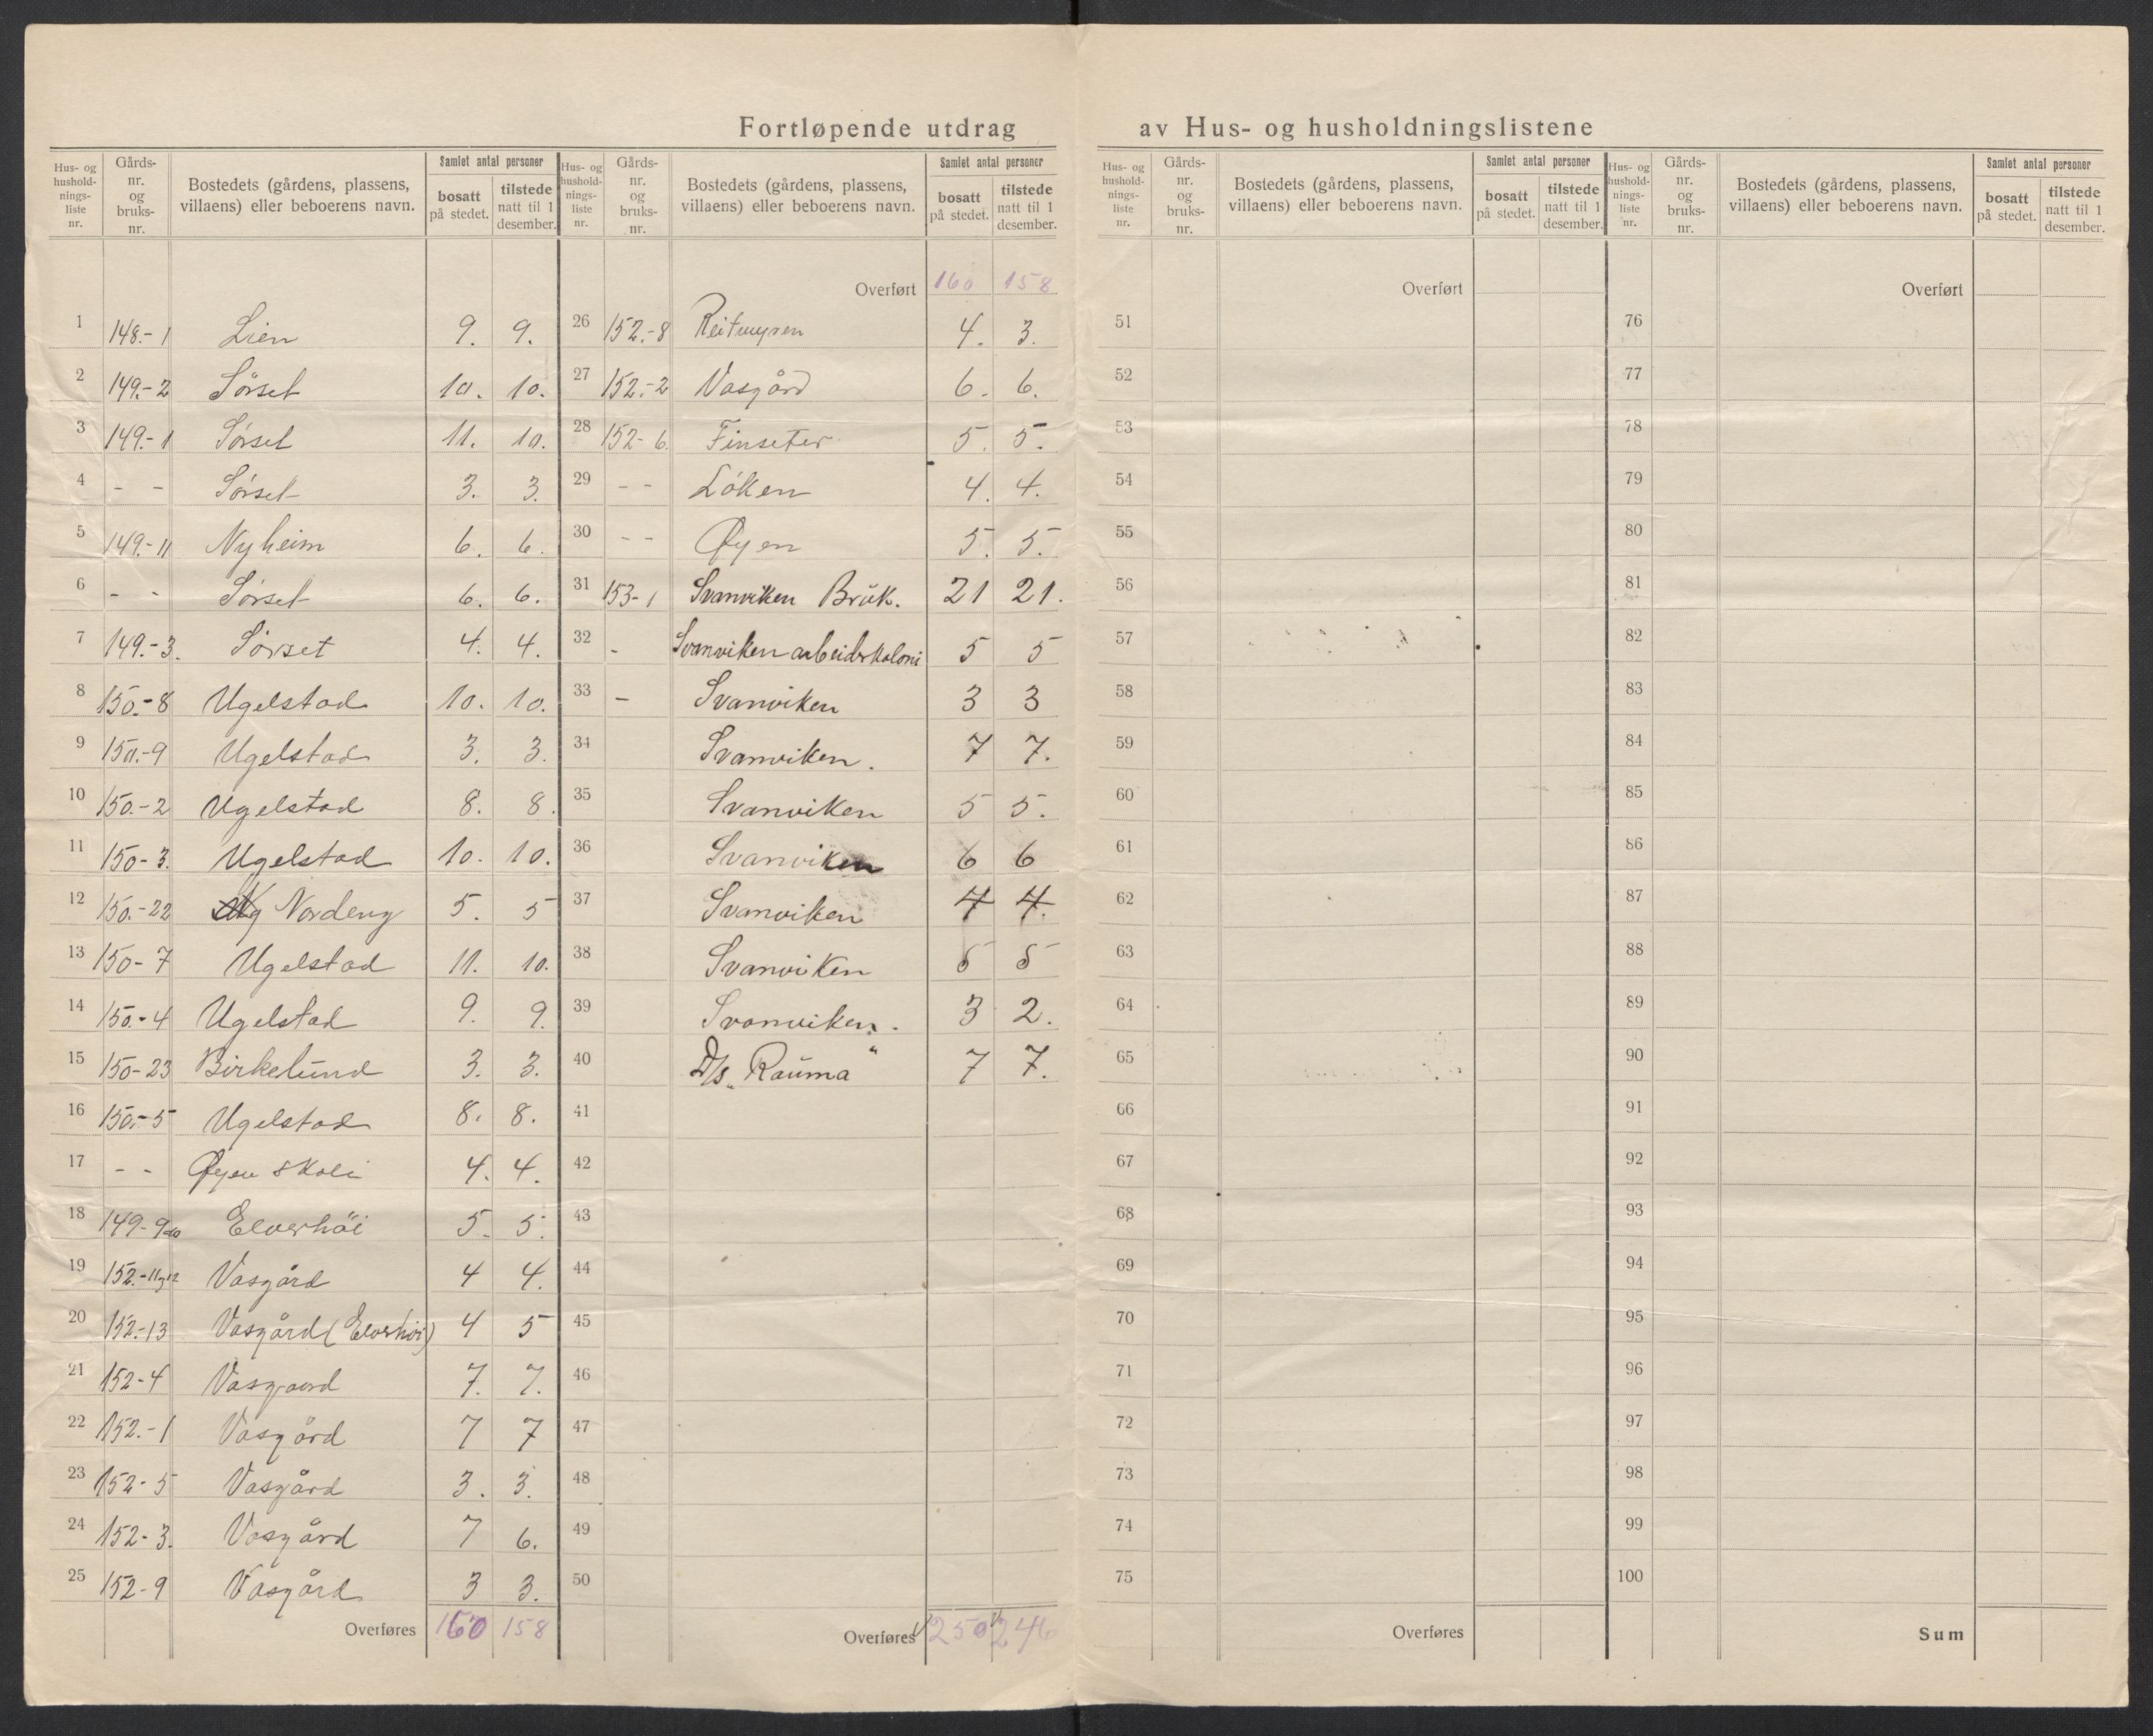 Fortløpende utdrag av Hus- og husholdningslistene
Hus- og husholdnings-liste nr. | Gårds-nr. og bruks-nr. | Bostedets (gårdens, plassens, villaens) eller beboerens navn. | Samlet antal personer | bosatt på stedet. | tilstede natt til 1 desember.
1 148.-1 Lien 9. 9.
2 149.-2 Sörset 10. 10.
3 149.-1 Sörset 11. 10.
4 - - Sörset 3. 3.
5 149.-11 Nyheim 6. 6.
6 - - Sörset 6. 6.
7 149.-3. Sörset 4. 4.
8 150.-8 Ugelstad 10. 10.
9 150.-9 Ugelstad 3. 3.
10 150.-2 Ugelstad 8. 8.
11 150-3. Ugelstad 10. 10.
12 150.-22 Nordeng 5. 5
13 150-7 Ugelstad 11. 10.
14 150.-4 Ugelstad 9. 9.
15 150-23 Birkelund 3. 3.
16 150.-5 Ugelstad 8. 8.
17 - - Øyen skole 4. 4.
18 149-9 Elverhöi 5. 5.
19 152.-11 12 Vasgård 4 4.
20 152.-13 Vasgård (Elverhöi) 4 5
21 152-4 Vasgaard 7. 7.
22 152.-1 Vasgård 7 7
23 152-5 Vasgård 3. 3.
24 152-3. Vasgård 7 6.
25 152-9 Vasgård 3 3.
Overføres 160 158
Hus- og husholdnings-liste nr. | Gårds-nr. og bruks-nr. | Bostedets (gårdens, plassens, villaens) eller beboerens navn. | Samlet antal personer | bosatt på stedet. | tilstede natt til 1 desember.
Overført 160 158
26 152.-8 Reitmyren 4. 3.
27 152.-2 Vasgård 6. 6.
28 152-6. Finseter 5. 5.
29 - - Löken 4. 4.
30 - - Øyen 5. 5.
31 153-1 Svanviken Bruk. 21 21.
32 - Svanviken arbeidskoloni 5 5
33 - Svanviken 3 3
34 Svanviken. 7 7.
35 Svanviken 5 5.
36 Svanviken 6 6
37 Svanviken 4 4.
38 Svanviken 5 5
39 Svanviken. 3 2.
40 D/s „Rauma" 7 7.
41
42
43
44
45
46
47
48
49
50
Overføres 250 246
Hus- og husholdnings-liste nr. | Gårds-nr. og bruks-nr. | Bostedets (gårdens, plassens, villaens) eller beboerens navn. | Samlet antal personer | bosatt på stedet. | tilstede natt til 1 desember.
Overført
51
52
53
54
55
56
57
58
59
60
61
62
63
64
65
66
67
68
69
70
71
72
73
74
75
Overføres
Hus- og husholdnings-liste nr. | Gårds-nr. og bruks-nr. | Bostedets (gårdens, plassens, villaens) eller beboerens navn. | Samlet antal personer | bosatt på stedet. | tilstede natt til 1 desember.
Overført
76
77
78
79
80
81
82
83
84
85
86
87
88
89
90
91
92
93
94
95
96
97
98
99
100
Sum